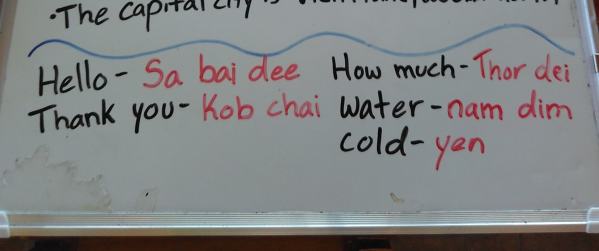 •The capital city is
Hello- Sa bai dee How much- Thor dei
Thank you- Kob chai water- nam dim
cold- yen